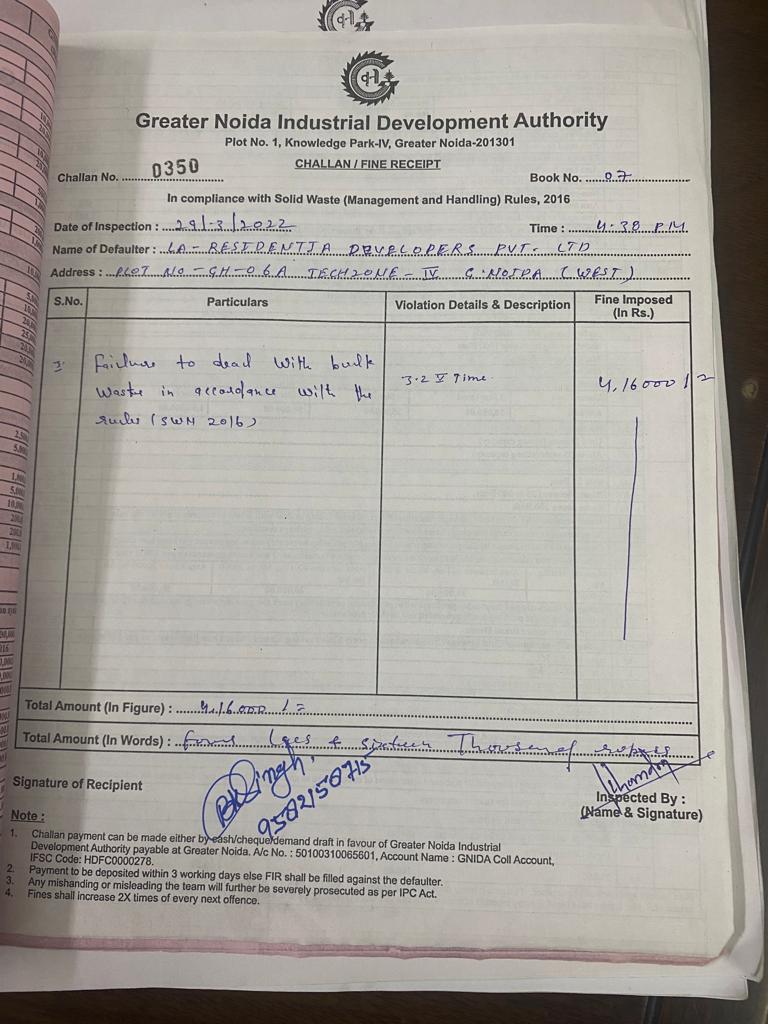 Greater Noida Industrial Development Authority
Plot No. 1, Knowledge Park-IV, Greater Noida-201301
CHALLAN / FINE RECEIPT
Challan No. 0350 Book No. 07
In compliance with Solid Waste (Management and Handling) Rules, 2016
Date of Inspection : 29/3/2022 Time : 4:38 P.M.
Name of Defaulter : LA-RESIDENTIA DEVELOPERS PVT. LTD
Address : PLOT NO-GH-06A TECHZONE-IV G.NOIDA (WEST)
S.No. Particulars Violation Details & Description Fine Imposed (In Rs.)
Failure to deal with bulk
waste in accordance with the
rules (SWM 2016)
3.2 V Time
4,16000/=
Total Amount (In Figure) : 4,16000/=
Total Amount (In Words) : four lacs & sixteen Thousand rupees
Signature of Recipient
BKSingh
9582158715
Inspected By :
(Name & Signature)
Note :
1. Challan payment can be made either by cash/cheque/demand draft in favour of Greater Noida Industrial
Development Authority payable at Greater Noida. A/c No. : 50100310065601, Account Name : GNIDA Coll Account,
IFSC Code: HDFC0000278.
2. Payment to be deposited within 3 working days else FIR shall be filled against the defaulter.
3. Any mishanding or misleading the team will further be severely prosecuted as per IPC Act.
4. Fines shall increase 2X times of every next offence.